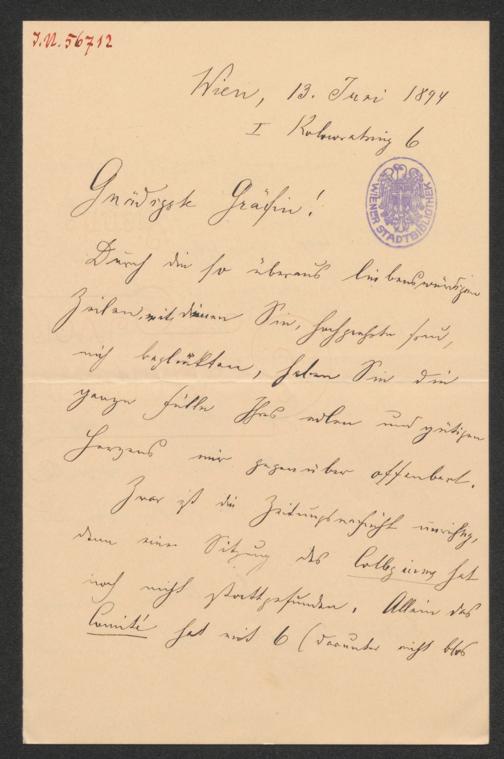 J.N. 56712
Wien, 13. Juni 1894
I Kolowratring 6
WIENER STADTBIBLIOTHEK
Gnädigste Gräfin!
Durch die so überaus liebenswürdigen
Zeilen, mit denen Sie, hochgeehrte Frau,
mich beglückten, haben Sie die
ganze Fülle Ihres edlen und gütigen
Herzens mir gegenüber offenbart.
Zwar ist die Zeitungsnachricht unrichtig,
denn eine Sitzung des Collegiums hat
noch nicht stattgefunden. Allein das
Comité hat mit 6 (darunter nicht blos